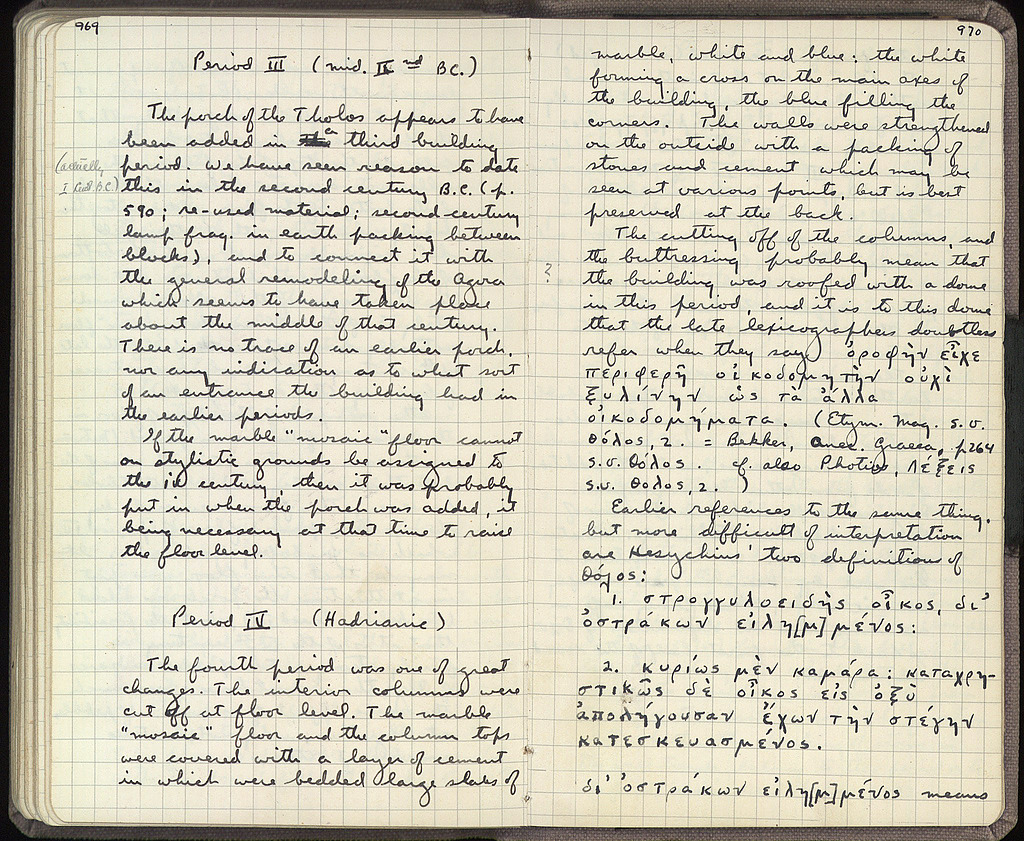 969
Period III (mid. II nd B.C.)
The porch of the Tholos appears to have
been added in a third building
period. We have seen reason to date
(actually
I B.C.)
this in the second century B.C. (p.
590; re-used material; second-century
lamp frag. in earth packing between
blocks), and to connect it with
the general remodeling of the Agora
which seems to have taken place
about the middle of that century.
There is no trace of an earlier porch,
nor any indication as to what sort
of an entrance the building had in
the earlier periods.
If the marble "mosaic" floor cannot
on stylistic grounds be assigned to
the century, then it was probably
put in when the porch was added, it
being necessary at that time to raise
the floor level.
Period IV (Hadrianic)
The fourth period was one of great
changes. The interior columns were
cut off at floor level. The marble
"mosaic" floor and the column tops
were covered with a layer of cement
in which were bedded large slabs of
970
marble, white and blue: the white
forming a cross on the main axes of
the building, the blue filling the
corners. The walls were strengthened
on the outside with a packing of
stones and cement which may be
seen at various points, but is best
preserved at the back.
The cutting off of the columns, and
the buttressing probably mean that
?
the building was roofed with a dome
in this period, and it is to this dome
that the late lexicographers doubtless
refer when they say ὀροφὴν εἶχε
περιφερῆ οἰκοδομητὴν οὐχὶ
ξυλίνην ὡς τὰ ἄλλα
οἰκοδομήματα. (Etym. Mag. s.v.
θόλος, 2. = Bekker, Anec. Graeca, p264
s.v. θόλος. cf. also Photius, λέξεις
s.v. θολος, 2. )
Earlier references to the same thing,
but more difficult of interpretation
are Hesychius' two definitions of
θόλος:
1. στρογγυλοειδὴς οἶκος, δι'
ὀστράκων εἰλη[μ]μένος:
2. κυρίως μὲν καμάρα: καταχρη-
στικῶς δὲ οἶκος εἰς ὀξὺ
ἀπολήγουσαν ἔχων τὴν στέγην
κατεσκευασμένος.
δι' ὀστράκων εἰλη[μ]μένος means